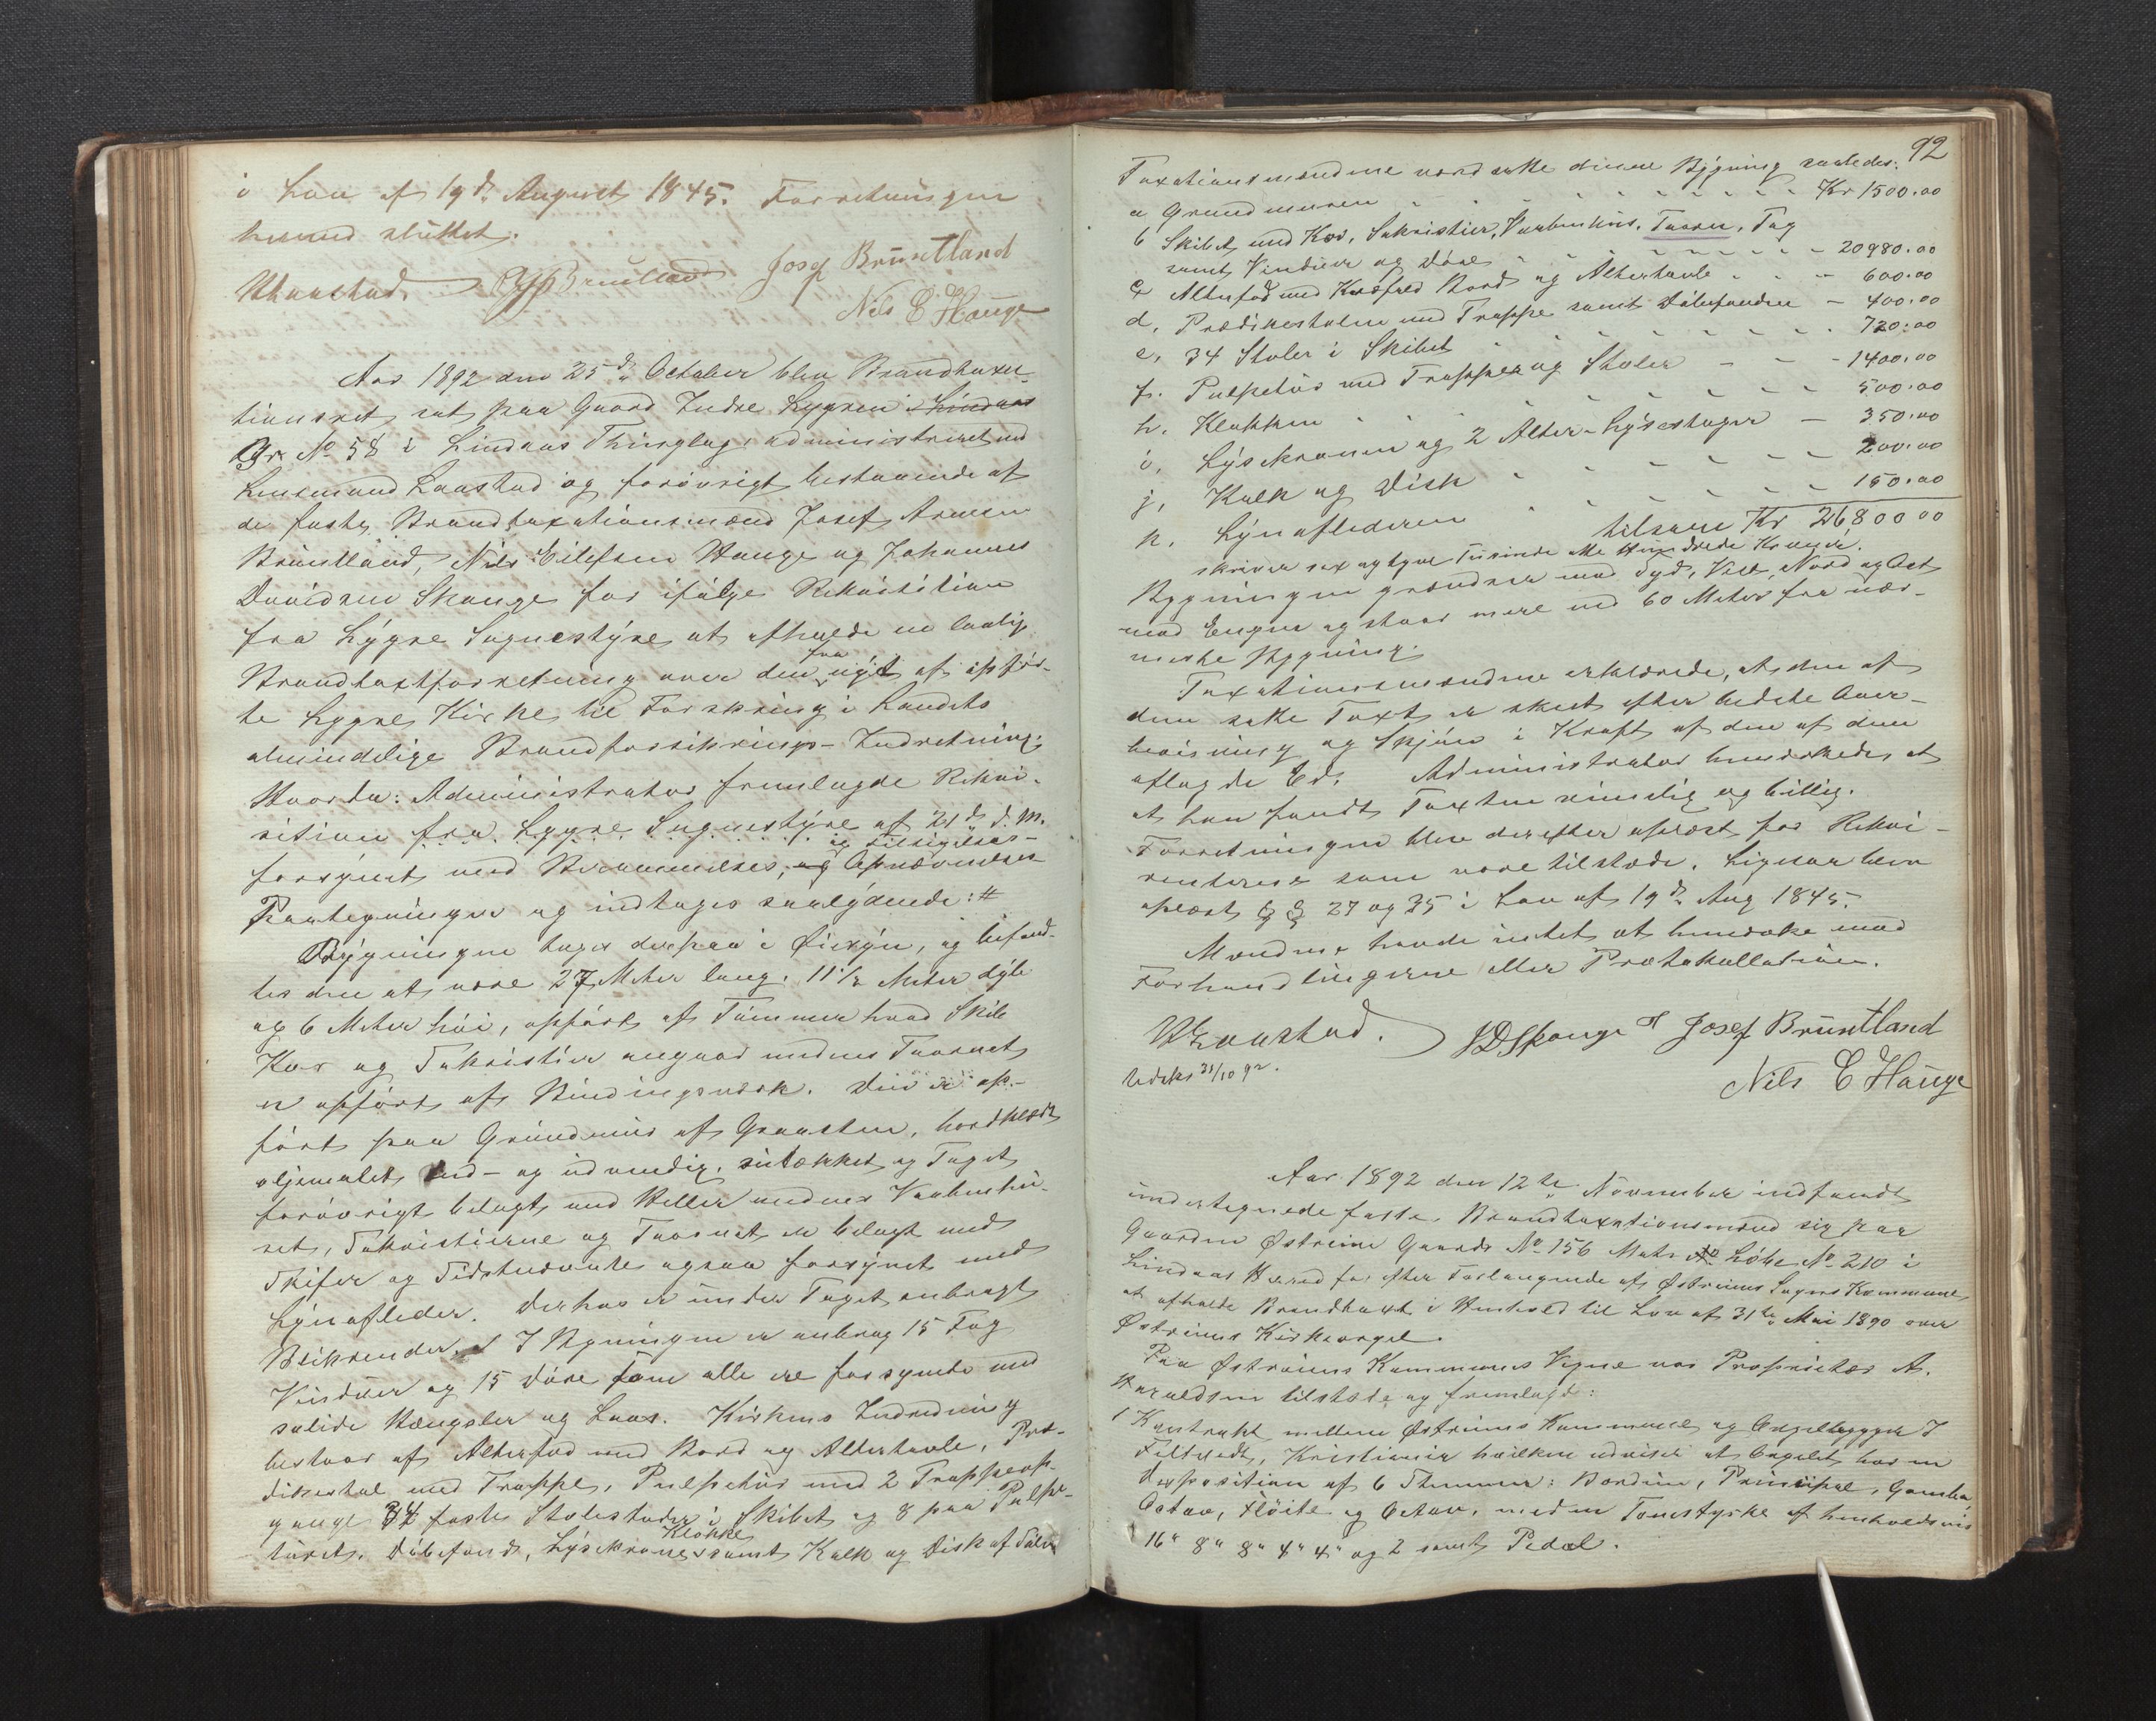 i Lov af 19de August 1845. Forretningen
hermed sluttet.
Josef Bruntland
Nils E Hauge
Aar 1892 den 25de October blev Brandtaxa-
tionsret sat paa Gaard Indre Lygren i Lindaas
Gr No 58 i Lindaas Thinglag, administreret ved
Lensmand Laastad og forøvrigt bestaaende af
de faste Brandtaxationsmænd Josef Arnesen
Bruntland, Nils Eilefsen Hauge og Johannes
Davidsen Skauge for ifølge Rekvisition
fra Lygre Sognestyre at afholde en lovlig
Brandtaxtforretning over den fra nyt af opfør-
te Lygre Kirke til Forsikring i Landets
almindelige Brandforsikrings-Indretning.
Hvorda: Administrator fremlagde Rekvi-
sition fra Lygre Sognestyre af 21de d. M.
forsynet med Berammelses, og Opnævnelses og Tilsigelses-
Paategninger og indtages saalydende: #
Bygningen toges derpaa i Øiesyn, og befand-
tes den at være 27 Meter lang, 11 1/2 Meter dyb
og 6 Meter høi, opført af Tømmer hvad Skib
Kor og Sakristier angaar medens Taarnet
er opført af Bindingsverk. Den er op-
ført paa Grundmur af Graasten, bordklædt
oljemalet ind- og udvendig, sutækket og Taget
forøvrigt belagt med Heller medens Vaabenhu-
set, Sakristierne og Taarnet er belagt med
Skifer og Sidstnævnte ogsaa forsynet med
Lynafleder. Derhos er under Taget anbragt
Blikrender. I Bygningen er anbrag 15 Fag
Vinduer og 15 Døre som alle ere forsynede med
solide Hængsler og Laas. Kirkens Indredning
bestaar af Alterfod med Bord og Altertavle, Præ-
dikestol med Trappe, Pulpetur med 2 Trappeop-
gange 34 faste Stolestader i Skibet og 8 paa Pulpe-
turet. Døbefond, Lysekroner Klokke samt Kalk og Disk af Sølv
92
Taxationsmændene værdsatte denne Bygning saaledes:
a Grundmuren - - - - Kr 1500.00
b Skibet med Kor, Sakristier, Vaabenhus, Taarn, Tag
samt Vinduer og Døre - - - - 20980.00
c Alterfod med Knæfald Bord og Altertavle - - - 600.00
d, Prædikestolen med Trappe samt Døbefonden - 400.00
e, 34 Stoler i Skibet - - - - 720.00
f. Pulpetur med Trapper og Stoler - - - 1400.00
h. Klokken - - - - 500.00
i, Lysekronen og 2 Alter-Lysestager - 350.00
j, Kalk og Disk - - - - 200.00
k. Lynaflederen - - - - 150.00
tilsam Kr 26800 00
skriver sex og tyve Tusinde otte Hundrede Kroner.
Bygningen grændser mod Syd, Vest, Nord og Øst
mod Engen og staar mere end 60 Meter fra nær-
meste Bygning.
Taxationsmændene erklærede, at den af
dem satte Taxt er skeet efter bedste Over-
bevisning og Skjøn i Kraft af den af dem
aflagde Ed. Administrator bemærkede at
at han fandt Taxten rimelig og billig.
Forretningen blev derefter oplæst for Rekvi-
renterne som vare tilstede. Ligesaa blev
oplæst § § 27 og 35 i Lov af 19de Aug 1845.
Mændene havde intet at bemærke mod
Forhandlingerne eller Protokollationen.
Laastad. JDSkauge Josef Bruntland
Udskr 31/10 92. Nils E Hauge
Aar 1892 den 12te November indfandt
undertegnede faste Brandtaxationsmænd sig paa
Gaarden Østreim Gaards No 156 Matr Løbe No 210 i
Lindaas Herred for efter Forlangende af Østreims Sogns Kommune
at afholde Brandtaxt i Henhold til Lov af 31te Mai 1890 over
Østreims Kirkeorgel.
Paa Østreims Kommunes Vegne var Proprietær A.
Haraldsen tilstede og fremlagde:
1 Kontrakt mellem Østreims Kommune og Orgelbygger I
Kristiania hvilken udviser at Orgelet har en
Disposition af 6 Stemmer: Bordun, Principal, Gamba,
Octav, Fløite og Octav, med en Tonestyrke af henholdsvis
16" 8" 8" 4" 4" og 2 samt Pedal.